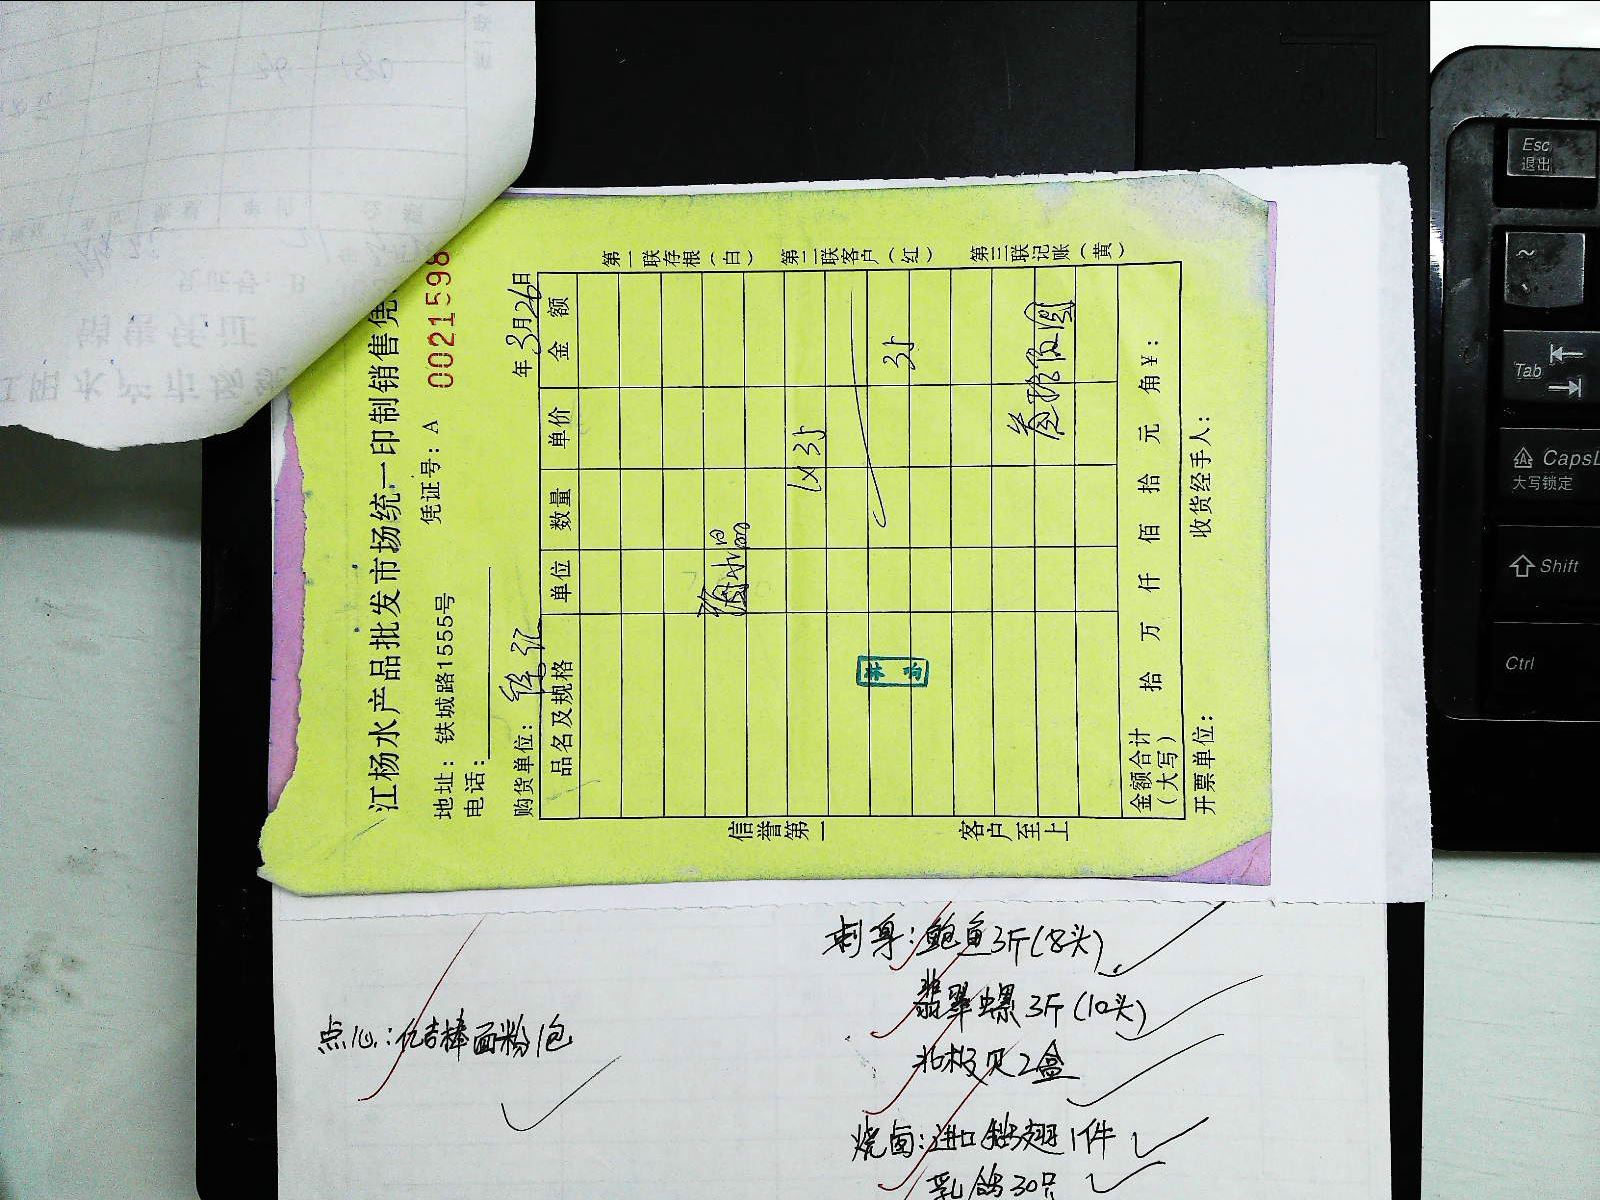 江杨水产品批发市场统一印制销售凭
地址：铁城路1555号 凭证号：A 0021598
电话：
购货单位： 年3月26日
品名及规格 单位 数量 单价 金额
1×35
35
金额合计（大写） 拾 万 仟 佰 拾 元 角 ¥：
开票单位： 收货经手人：
第一联存根（白） 第二联客户（红） 第三联记账（黄）
信誉第一 客户至上
刺身：鲍鱼3斤(8头)
翡翠螺3斤(10头)
北极贝2盒
点心：亿吉棒面粉1包
烧卤：进口 翅1件
乳鸽30只
Esc
退出
~
Tab
CapsL
大写锁定
Shift
Ctrl